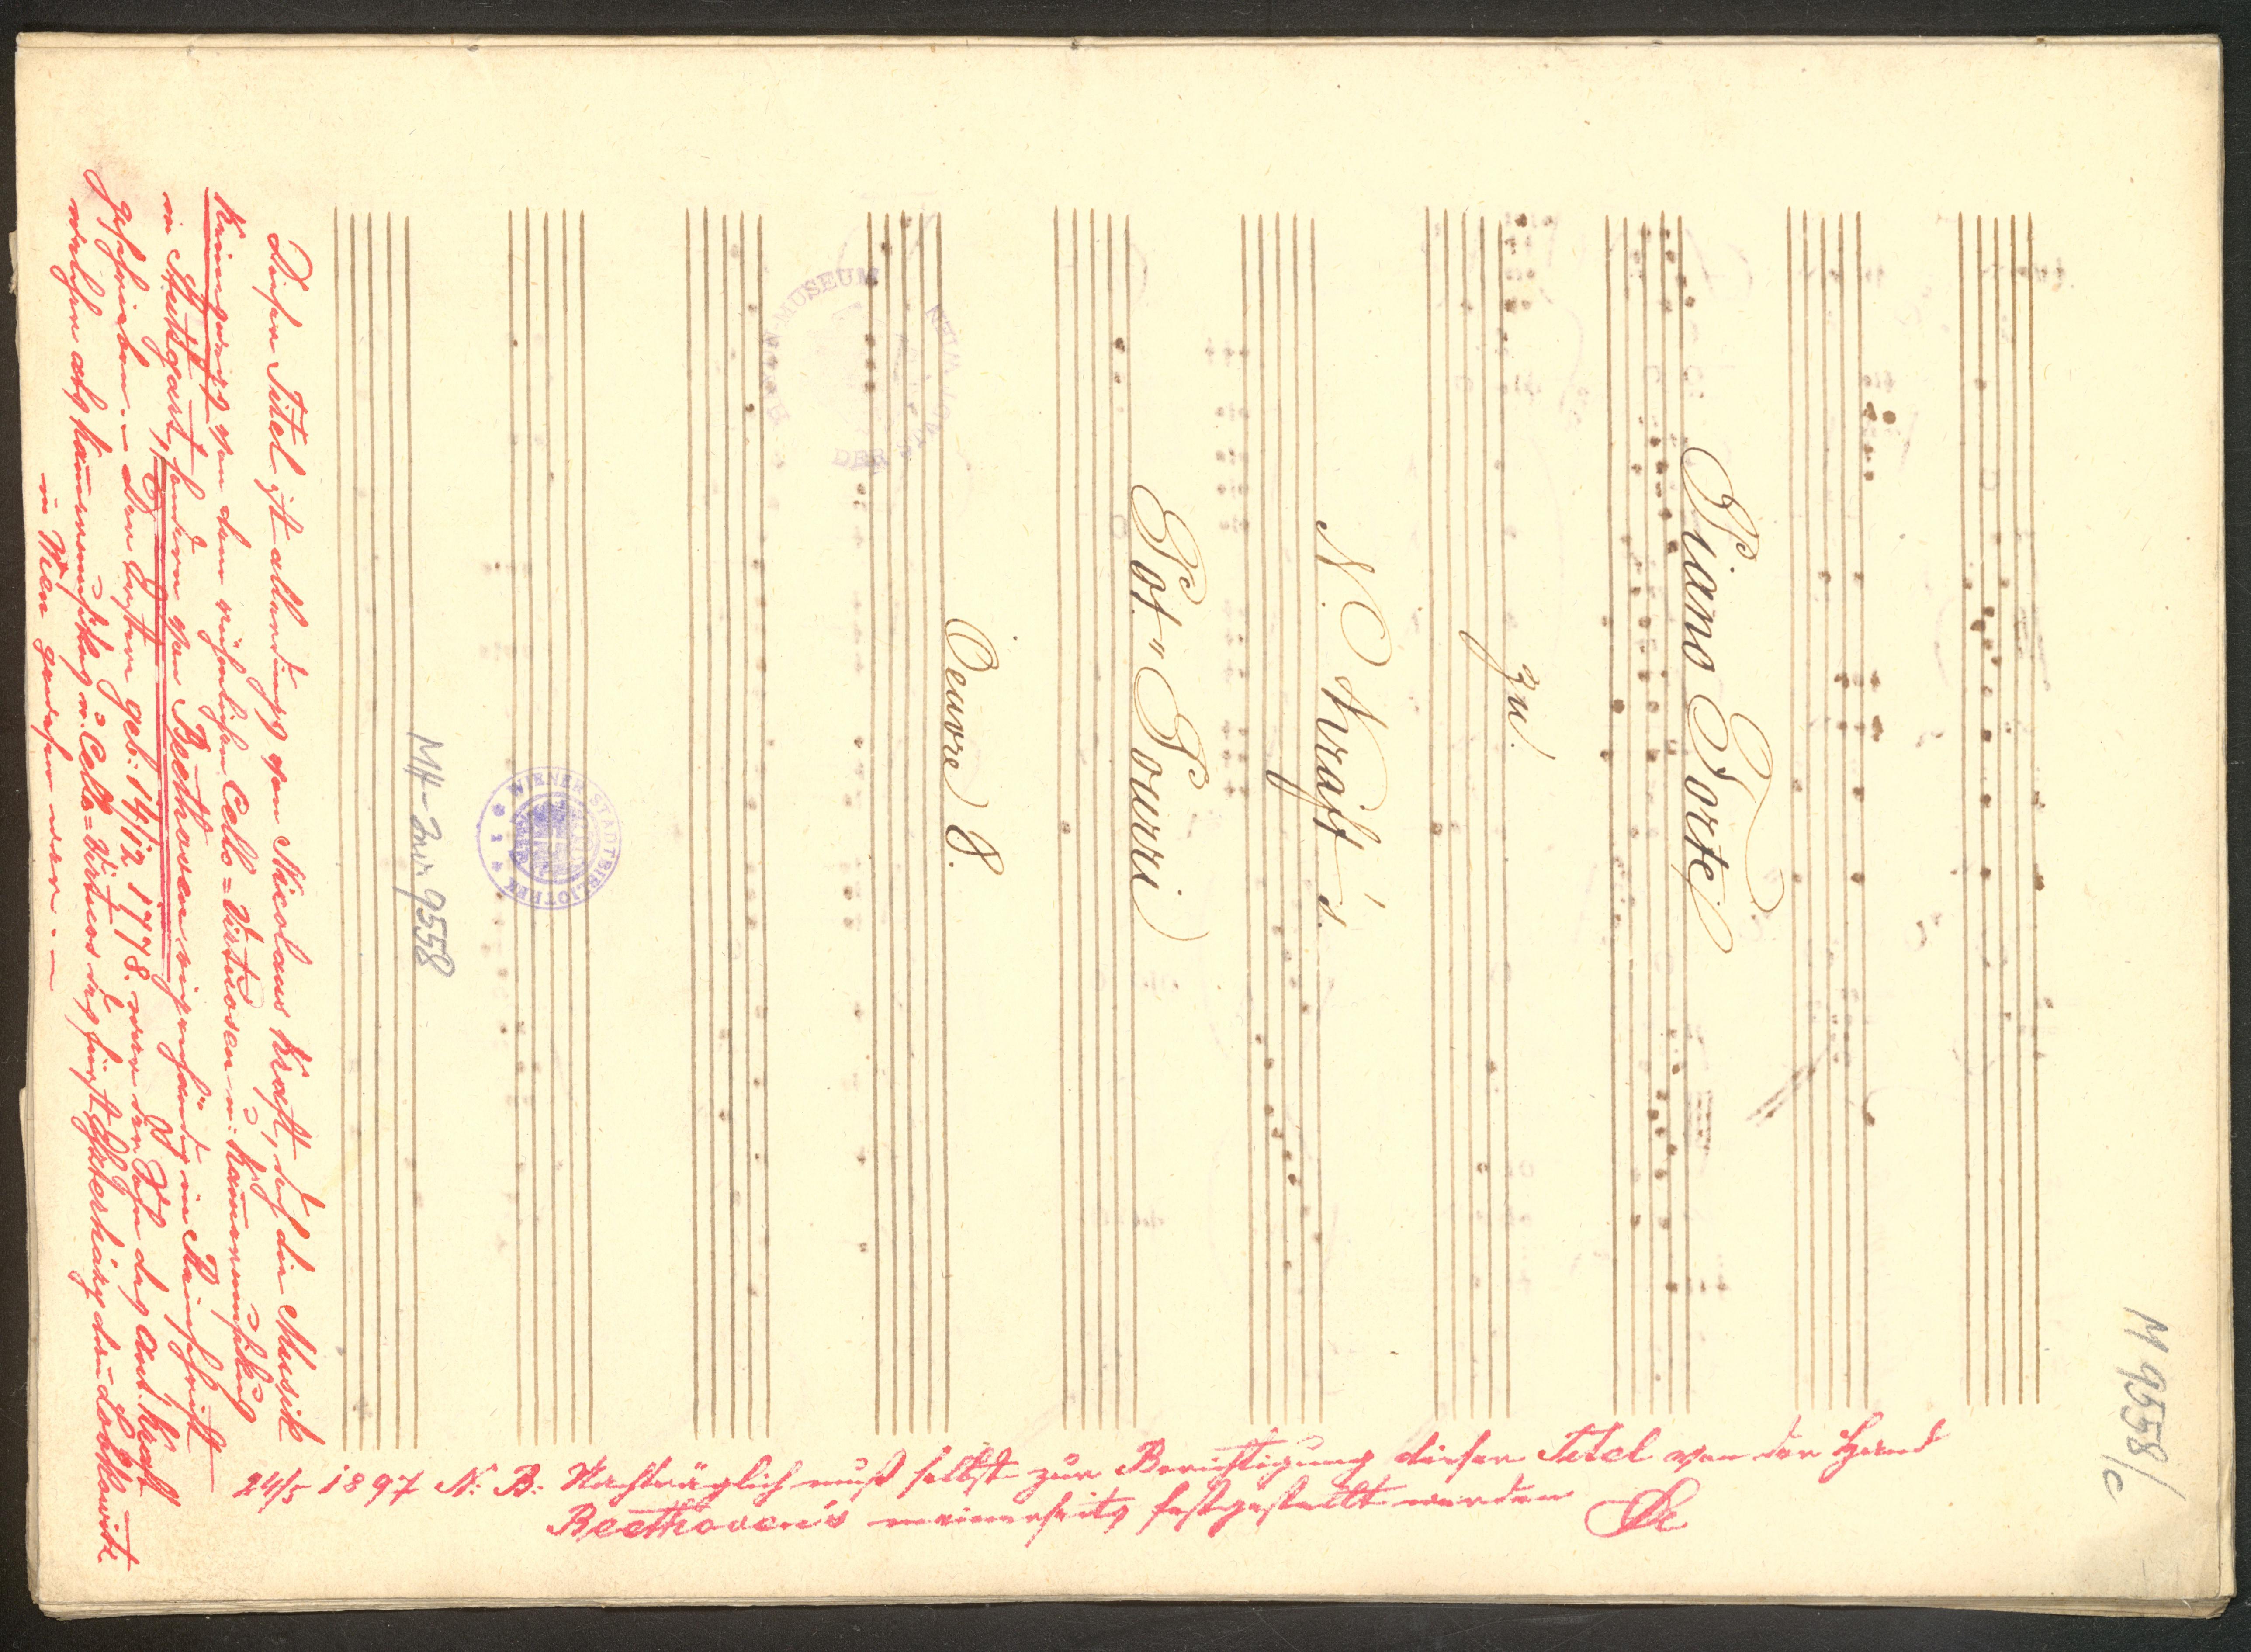 Piano Forte
zu.
N. Kraft's.
Pot-Pourri
Oeuvre 8.
MH-Inv. 9558
WIENER STADTBIBLIOTHEK
MUSEUM
DER
M 9558/c
Dieser Titel ist allerdings von Nicolaus Kraft, doch die Musik
Keineswegs von dem eigentlichen Cello=Virtuosen u: Kam̄ermusikus
in Stuttgart, sondern von Beethoven eigenhändig in Reinschrift
geschrieben. – Der Erstere geb: 14/12 1778. war der Sohn des Ant: Kraft
welcher als Kam̄ermusikus u: Cello=Virtuos des fürst Esterházy dann Lobkowitz
in Wien gewesen war. –
24/5 1897 N: B: Nachträglich muß selbst zur Berichtigung dieser Titel von der Hand
Beethoven's meinerseits festgestellt werden